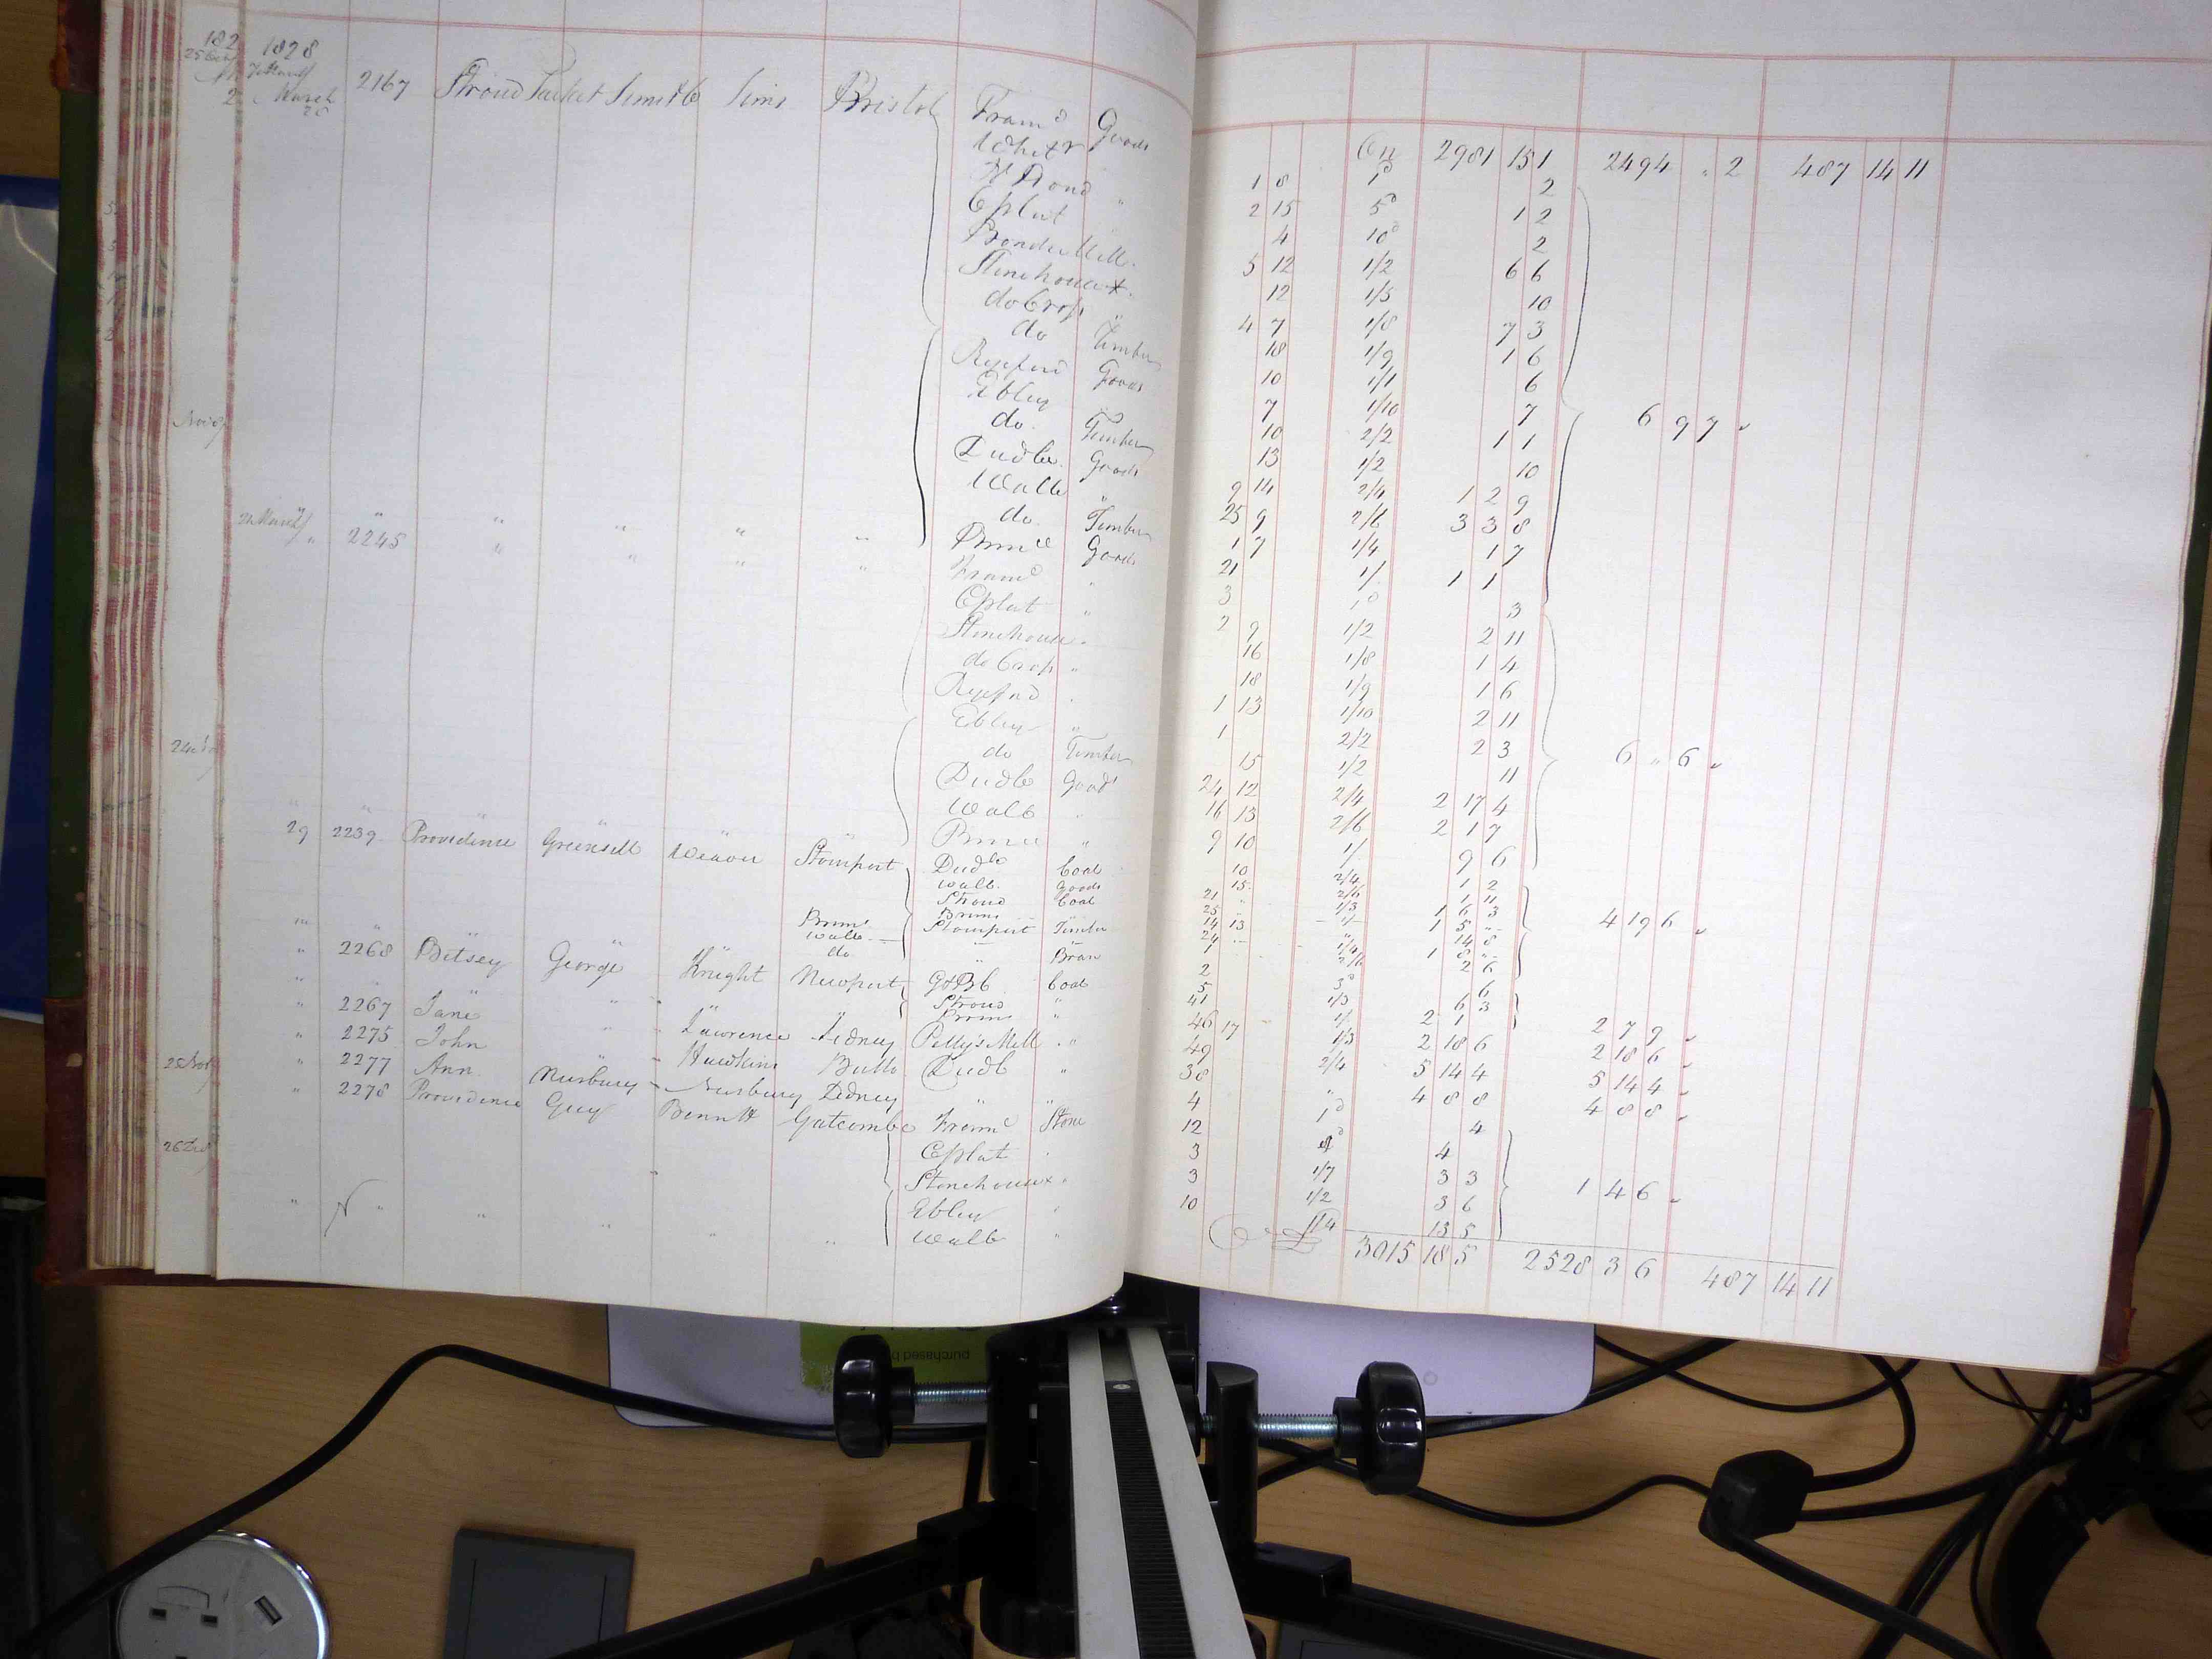 1828
March
2167 Stroud Packet Smith Sims Bristol Fram^d Goods
Whitr "
Eplat "
Bonds Mill "
Stonehouse "
do Crop "
do Timber
Ryeford Goods
Ebley "
do Timber
Dudbe Goods
Wallb "
do Timber
Brim^e Goods
2245 " " " " Fram^d "
Eplat "
Stonehouse "
do Crop "
Ryeford "
Ebley "
do Timber
Dudb Goods
Wallb "
Brimce "
29 2239 Providence Greensell Weaver Stourport Dudb Coal
Wallb Goods
Stroud Coal
Brims "
Brims Stourport Timber
Wallb " "
do " Bran
" 2268 Betsey George Knight Newport G&BC Coal
Stroud "
Brims "
" 2267 Jane " Lawrence Lidney Petty's Mill "
" 2275 John " Hawkins Bullo Dudb "
" 2277 Ann Nurbury Nurbury Lidney " "
" 2278 Providence Guy Bennett Gatcombe Fram^e Stone
Eplat "
Stonehouse "
Ebley "
Wallb "
2981 15 1 2494 " 2 487 14 11
1 8 1^d 2
2 15 5^d 1 2
4 10^d 2
5 12 1/2 6 6
12 1/5 10
4 7 1/8 7 3
18 1/9 1 6
10 1/1 6
7 1/10 7
10 2/2 1 1
13 1/2 10
9 14 2/4 1 2 9
25 9 2/6 3 3 8
1 7 1/4 1 7
6 9 7
21 1/ 1 1
3 1^d 3
2 9 1/2 2 11
16 1/8 1 4
18 1/9 1 6
1 13 1/10 2 11
1 2/2 2 3
15 1/2 11
24 12 2/4 2 17 4
16 13 2/6 2 1 7
9 10 1/ 9 6
6 " 6
10 2/4 1 2
15 2/6 1 11
21 1/3 1 6 3
25 1/ 1 5 "
14 13 " 14 8
24 1/4 1 8 "
1 2/6 2 6
4 19 6
2 3^d 6
5 1/3 6 3
41 1/ 2 1
2 7 9
46 17 1/3 2 18 6 2 18 6
49 2/4 5 14 4 5 14 4
38 " 4 8 8 4 8 8
4 1^d 4
12 4^d 4
3 1/1 3 3
3 1/2 3 6
10 1/4 13 5
1 4 6
3015 18 5 2528 3 6 487 14 11
purchased b